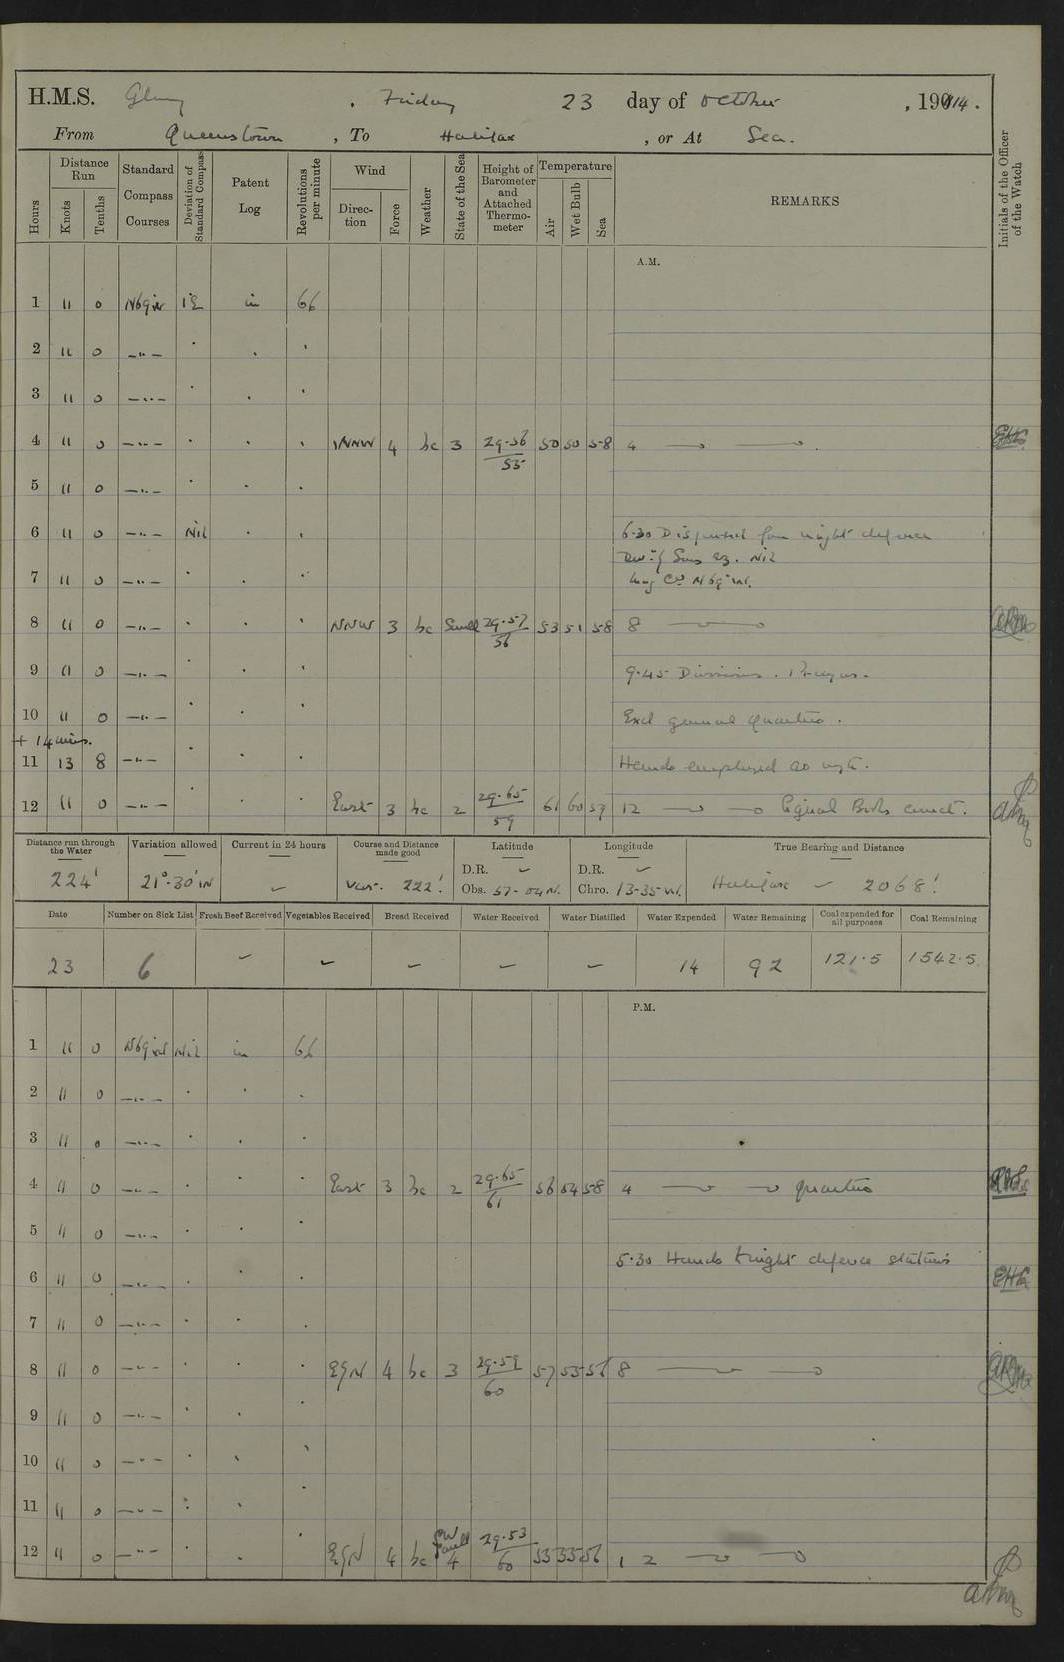 H.M.S. Glory, Friday 23 day of October, 1914.
From Queenstown, To Halifax, or At Sea.
Hours
Distance Run
Knots
Tenths
Standard Compass Courses
Deviation of Standard Compass
Patent Log
Revolutions per minute
Wind
Direction
Force
Weather
State of the Sea
Height of Barometer and Attached Thermometer
Temperature
Air
Wet Bulb
Sea
REMARKS
Initials of the Officer of the Watch
A.M.
1 11 0 N69W 1E in 66
2 11 0 —"—
3 11 0 —"—
4 11 0 —"— NNW 4 bc 3 29.56/55 50 50 58 4
5 11 0 —"—
6 11 0 —"— Nil 6.30 Dispersed from night defence
Devn of Sans 23. Nil
7 11 0 —"— Mag Co N69W.
8 11 0 —"— NNW 3 bc Swell 29.57/56 53 51 58 8
9 11 0 —"— 9.45 Divisions. Prayers.
10 11 0 —"— Exd general quarters.
+ 14 mins.
11 13 8 —"— Hands employed as reqte.
12 11 0 —"— East 3 bc 2 29.65/59 61 60 57 12 Signal Books correct.
Distance run through the Water 224'
Variation allowed 21°.30'W
Current in 24 hours
Course and Distance made good Var. 222'.
Latitude
D.R.
Obs. 57-04N.
Longitude
D.R.
Chro. 13-35W.
True Bearing and Distance
Halifax 2068'.
Date Number on Sick List Fresh Beef Received Vegetables Received Bread Received Water Received Water Distilled Water Expended Water Remaining Coal expended for all purposes Coal Remaining
23 6 14 92 121.5 1542.5
P.M.
1 11 0 N69W Nil in 66
2 11 0 —"—
3 11 0 —"—
4 11 0 —"— East 3 bc 2 29.65/61 56 54 58 4 quarters
5 11 0 —"—
5.30 Hands to night defence stations
6 11 0 —"— EHG
7 11 0 —"—
8 11 0 —"— EbyN 4 bc 3 29.59/60 57 55 56 8
9 11 0 —"—
10 11 0 —"—
11 11 0 —"—
12 11 0 —"— EbyN 4 bc SW Swell 4 29.53/60 53 53 56 12